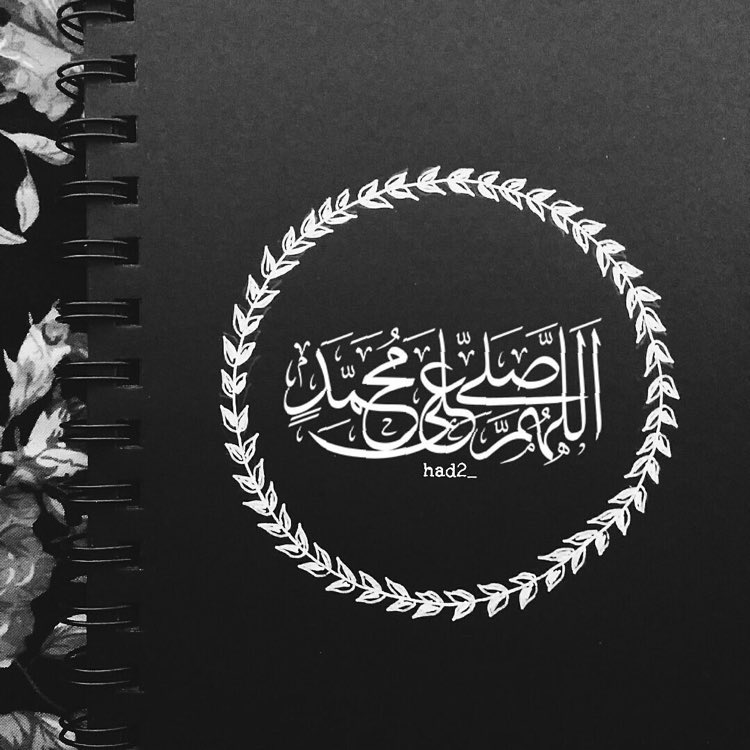 اللهم صل على محمد
had2_